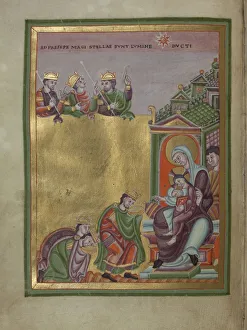 AD PRESEPE MAGI STELLAE SVNT LVMINE DVCTI